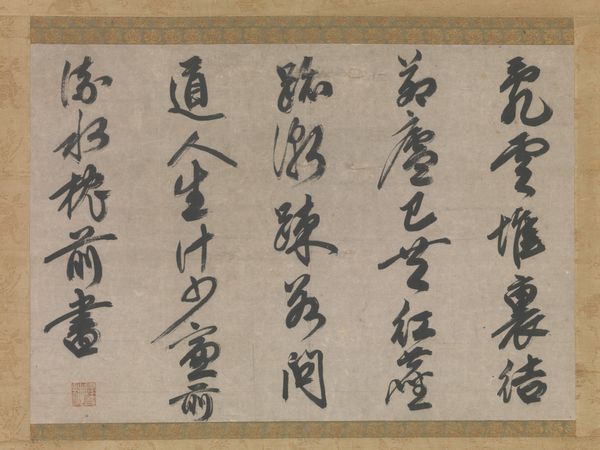 亂雲堆裏結
茅廬已共紅塵
跡漸疎莫問
道人生計少窓前
流水枕前書